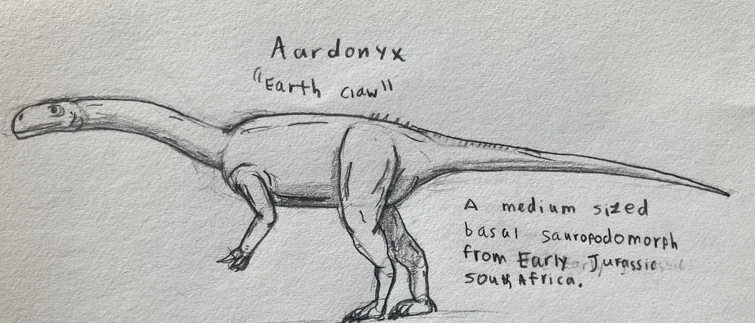 Aardonyx
"Earth claw"
A medium sized
basal sauropodomorph
from Early Jurassic
South Africa.